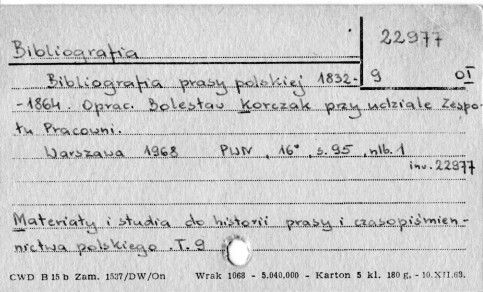 Bibliografia
22977
9 OI
Bibliografia prasy polskiej 1832-
-1864. Oprac. Bolesław Korczak przy udziale Zespo-
łu Pracowni.
Warszawa 1968 PWN, 16°, s. 95, nlb. 1
inv. 22977
Materiały i studia do historii prasy i czasopiśmien-
nictwa polskiego. T. 9
CWD B 15 b Zam. 1537/DW/On Wrak 1068 - 5.040.000 - Karton 5 kl. 180 g. - 10.XII.63.